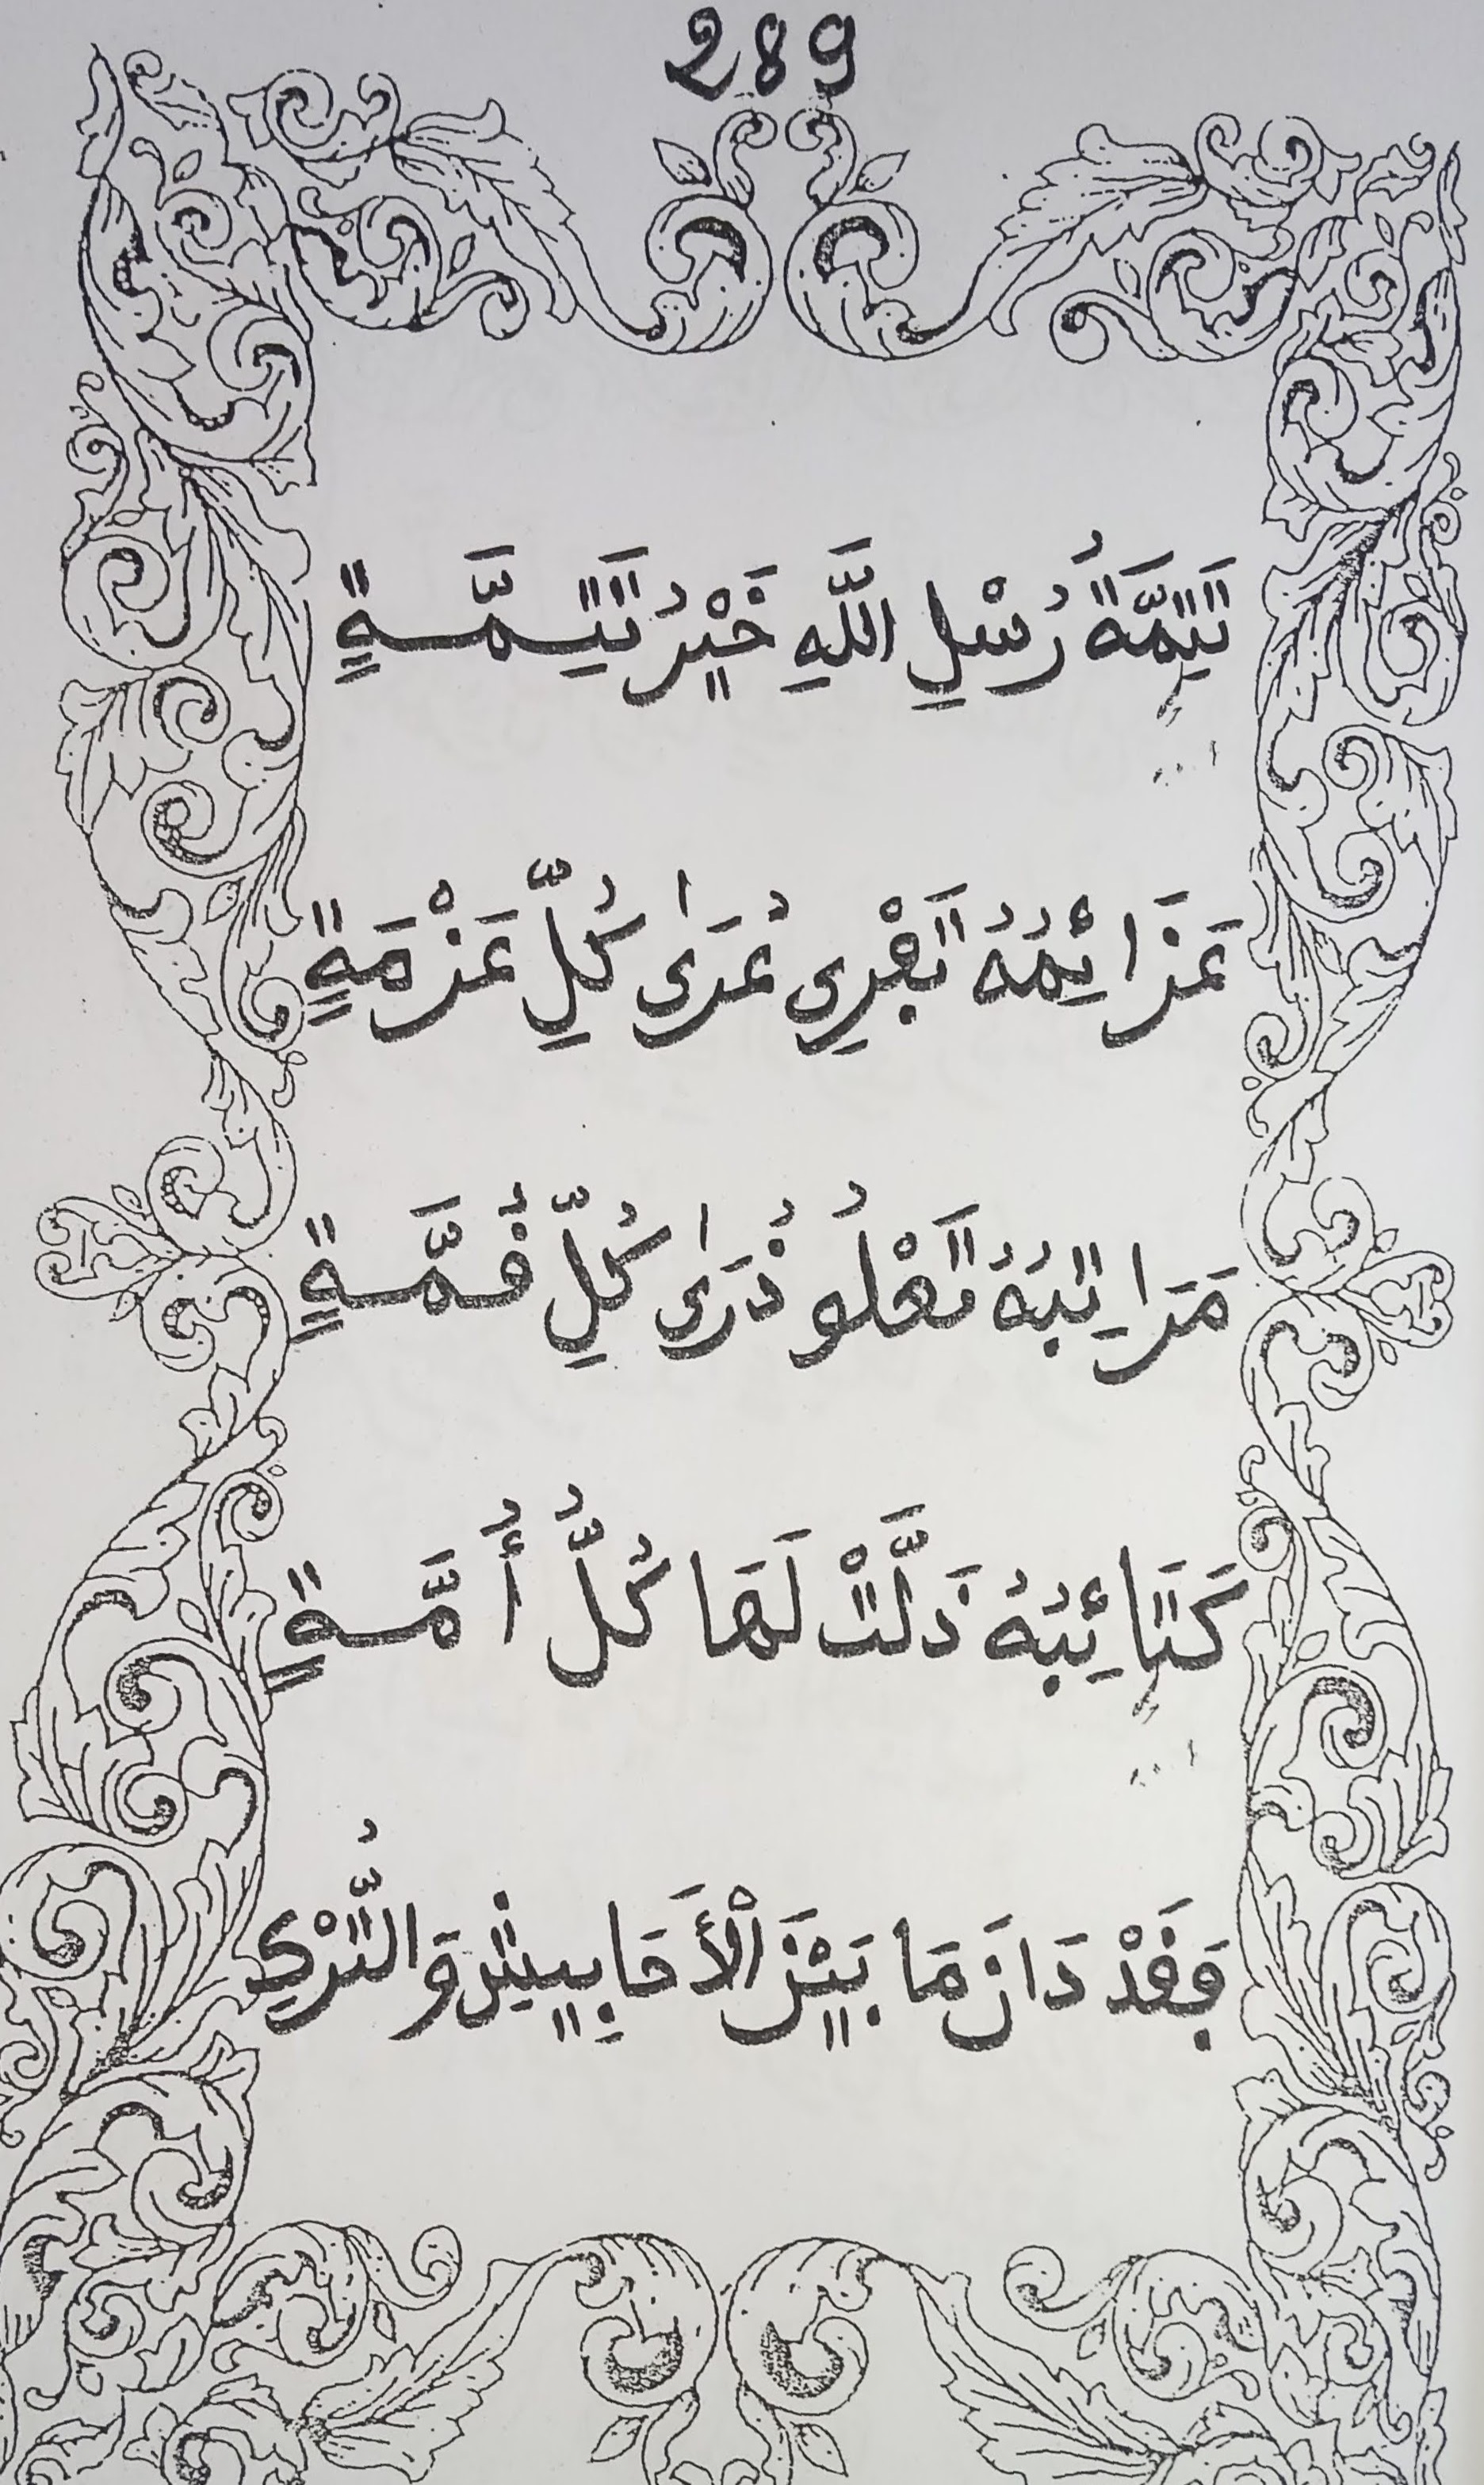 289
تَتِمَّةُ رُسْلِ اللَّهِ خَيْرُ تَتِمَّةٍ
عَزَائِمُهُ تَفْرِي عُرَىٰ كُلِّ عَزْمَةٍ
مَرَاتِبُهُ تَعْلُو ذُرَىٰ كُلِّ قُمَّةٍ
كَتَائِبُهُ ذَلَّتْ لَهَا كُلُّ أُمَّةٍ
فَقَدْ دَانَ مَا بَيْنَ الْأَحَابِيشِ وَالتُّرْكِ